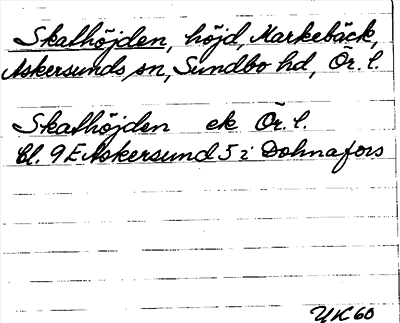 Skathöjden, höjd, Markebäck,
Askersunds sn, Sundbo hd, Ör. l.
Skathöjden ek Ör. l.
Bl. 9 E Askersund 5 i Dohnafors
YK 60